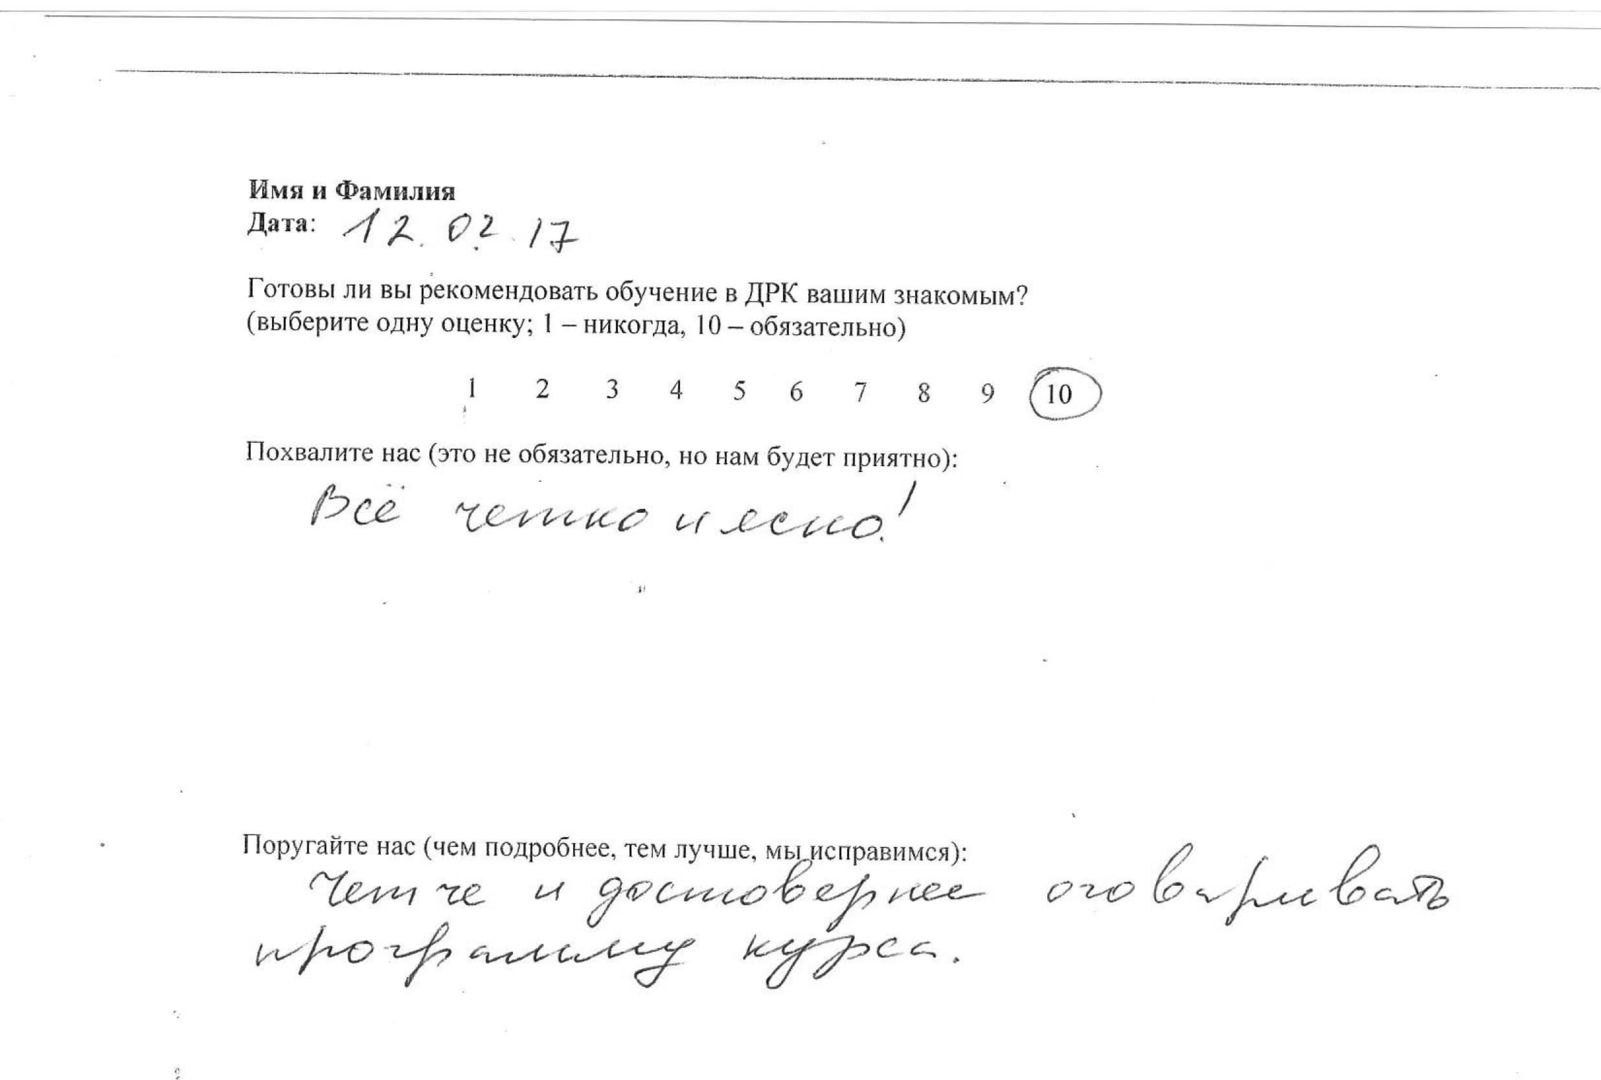 Имя и Фамилия
Дата: 12.02.17
Готовы ли вы рекомендовать обучение в ДРК вашим знакомым?
(выберите одну оценку; 1 – никогда, 10 – обязательно)
1 2 3 4 5 6 7 8 9 10
Похвалите нас (это не обязательно, но нам будет приятно):
Всё четко и ясно!
Поругайте нас (чем подробнее, тем лучше, мы исправимся):
Четче и достовернее оговаривать
программу курса.